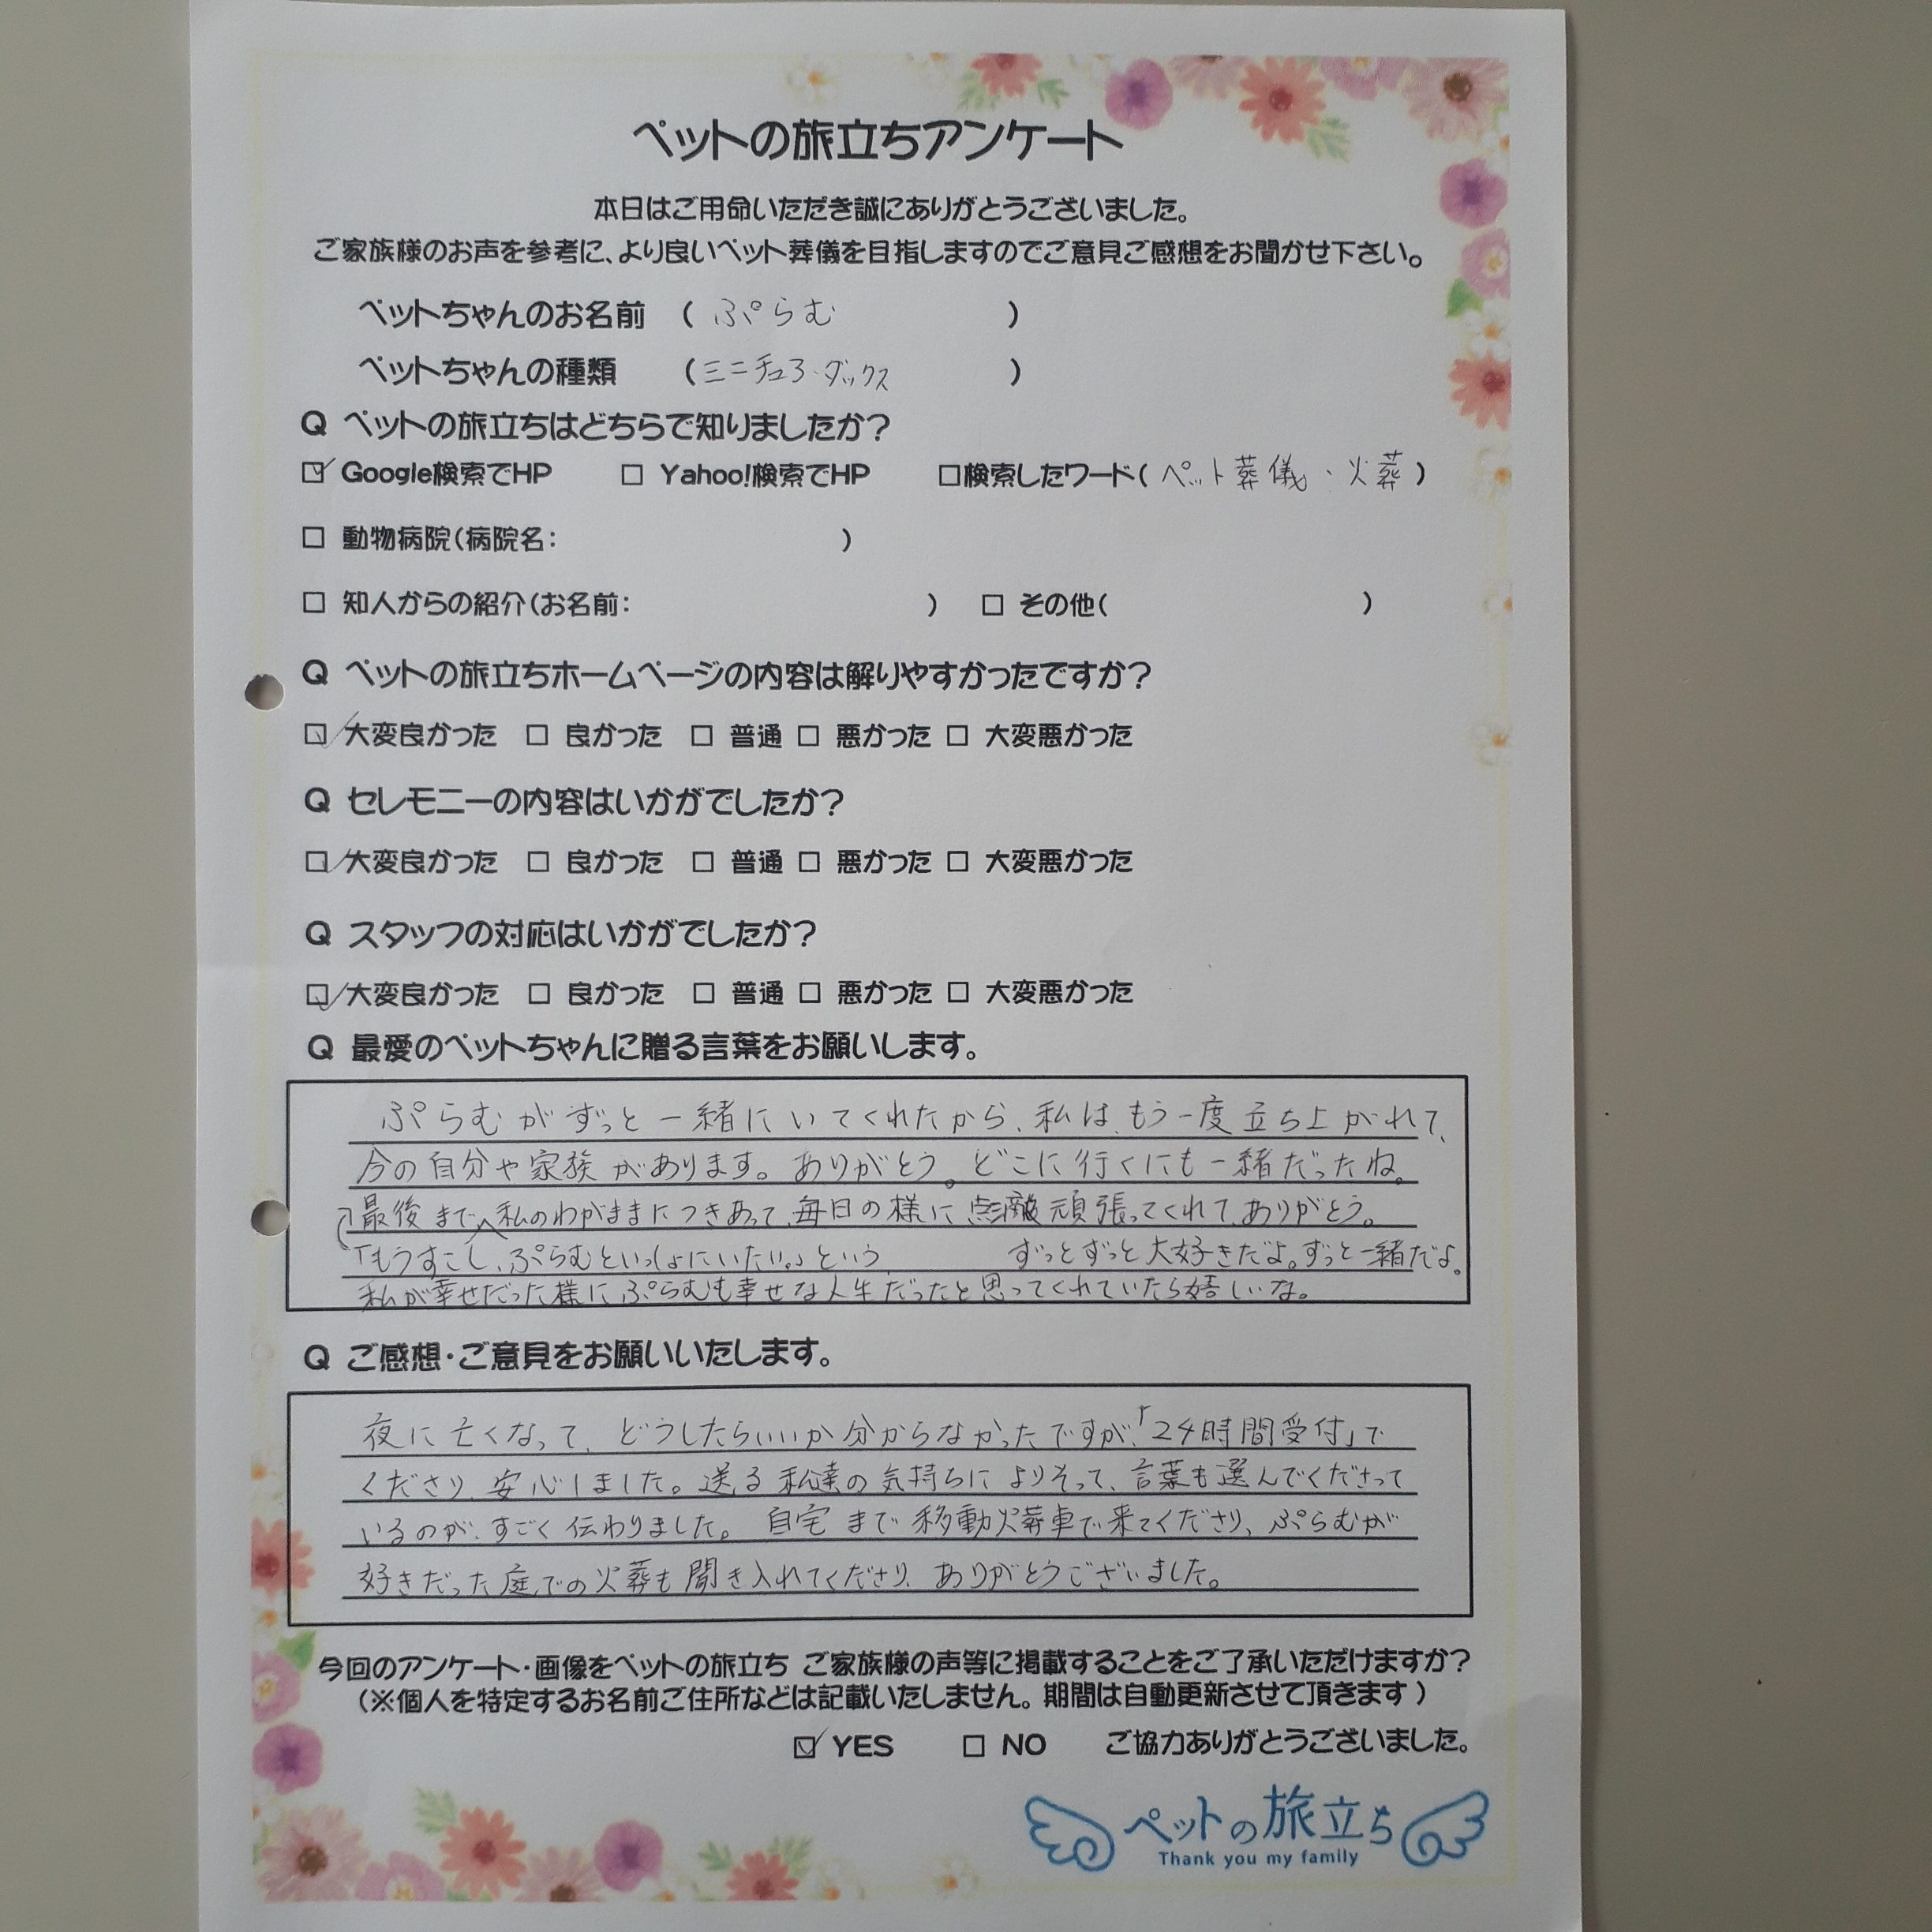 ペットの旅立ちアンケート
本日はご用命いただき誠にありがとうございました。
ご家族様のお声を参考に、より良いペット葬儀を目指しますのでご意見ご感想をお聞かせ下さい。
ペットちゃんのお名前 ( ぷらむ )
ペットちゃんの種類 (ミニチュア・ダックス )
Q ペットの旅立ちはどちらで知りましたか?
☑ Google検索でHP □ Yahoo!検索でHP □検索したワード( ペット葬儀、火葬 )
□ 動物病院(病院名: )
□ 知人からの紹介(お名前: ) □ その他( )
Q ペットの旅立ちホームページの内容は解りやすかったですか?
☑ 大変良かった □ 良かった □ 普通 □ 悪かった □ 大変悪かった
Q セレモニーの内容はいかがでしたか?
☑ 大変良かった □ 良かった □ 普通 □ 悪かった □ 大変悪かった
Q スタッフの対応はいかがでしたか?
☑ 大変良かった □ 良かった □ 普通 □ 悪かった □ 大変悪かった
Q 最愛のペットちゃんに贈る言葉をお願いします。
ぷらむがずっと一緒にいてくれたから、私は、もう一度立ち上がれて、
今の自分や家族があります。ありがとう。どこに行くにも一緒だったね。
最後まで、私のわがままにつきあって、毎日の様に点滴頑張ってくれて、ありがとう。
「もうすこし、ぷらむといっしょにいたい。」という ずっとずっと大好きだよ。ずっと一緒だよ。
私が幸せだった様に、ぷらむも幸せな人生だったと思ってくれていたら嬉しいな。
Q ご感想・ご意見をお願いいたします。
夜に亡くなって、どうしたらいいか分からなかったですが、「24時間受付」で
くださり、安心しました。送る私達の気持ちによりそって、言葉も選んでくださって
いるのが、すごく伝わりました。 自宅まで移動火葬車で来てくださり、ぷらむが
好きだった庭での火葬も聞き入れてくださり、ありがとうございました。
今回のアンケート・画像をペットの旅立ち ご家族様の声等に掲載することをご了承いただけますか?
(※個人を特定するお名前ご住所などは記載いたしません。期間は自動更新させて頂きます)
☑ YES □ NO ご協力ありがとうございました。
ペットの旅立ち
Thank you my family